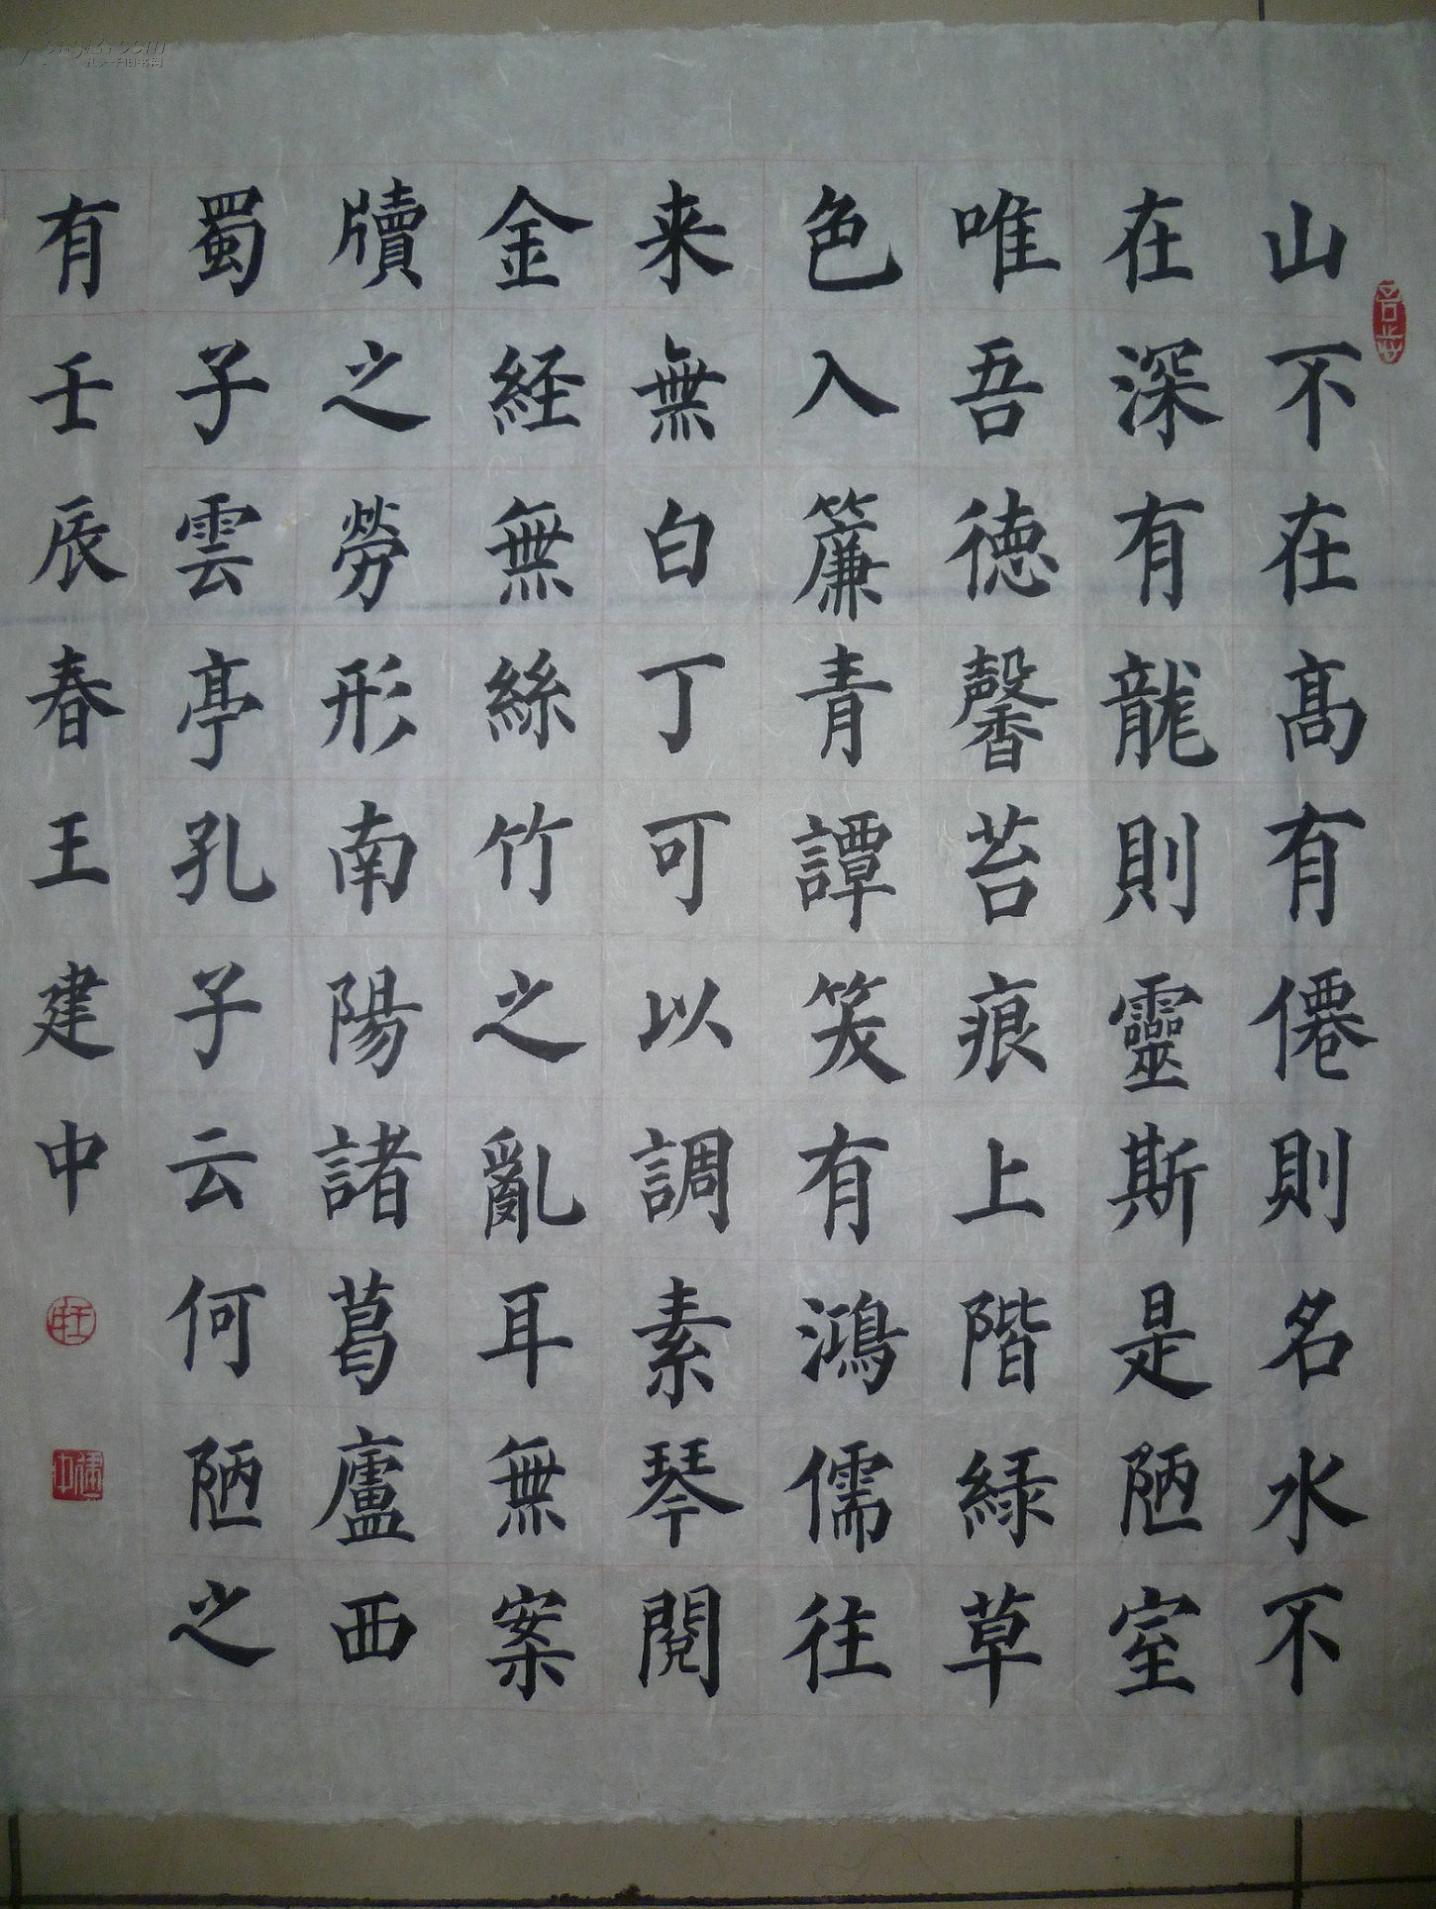 山不在高有僊則名水不
在深有龍則靈斯是陋室
唯吾德馨苔痕上階緑草
色入簾青譚笑有鴻儒往
来無白丁可以調素琴閱
金経無絲竹之亂耳無案
牘之勞形南陽諸葛廬西
蜀子雲亭孔子云何陋之
有壬辰春王建中